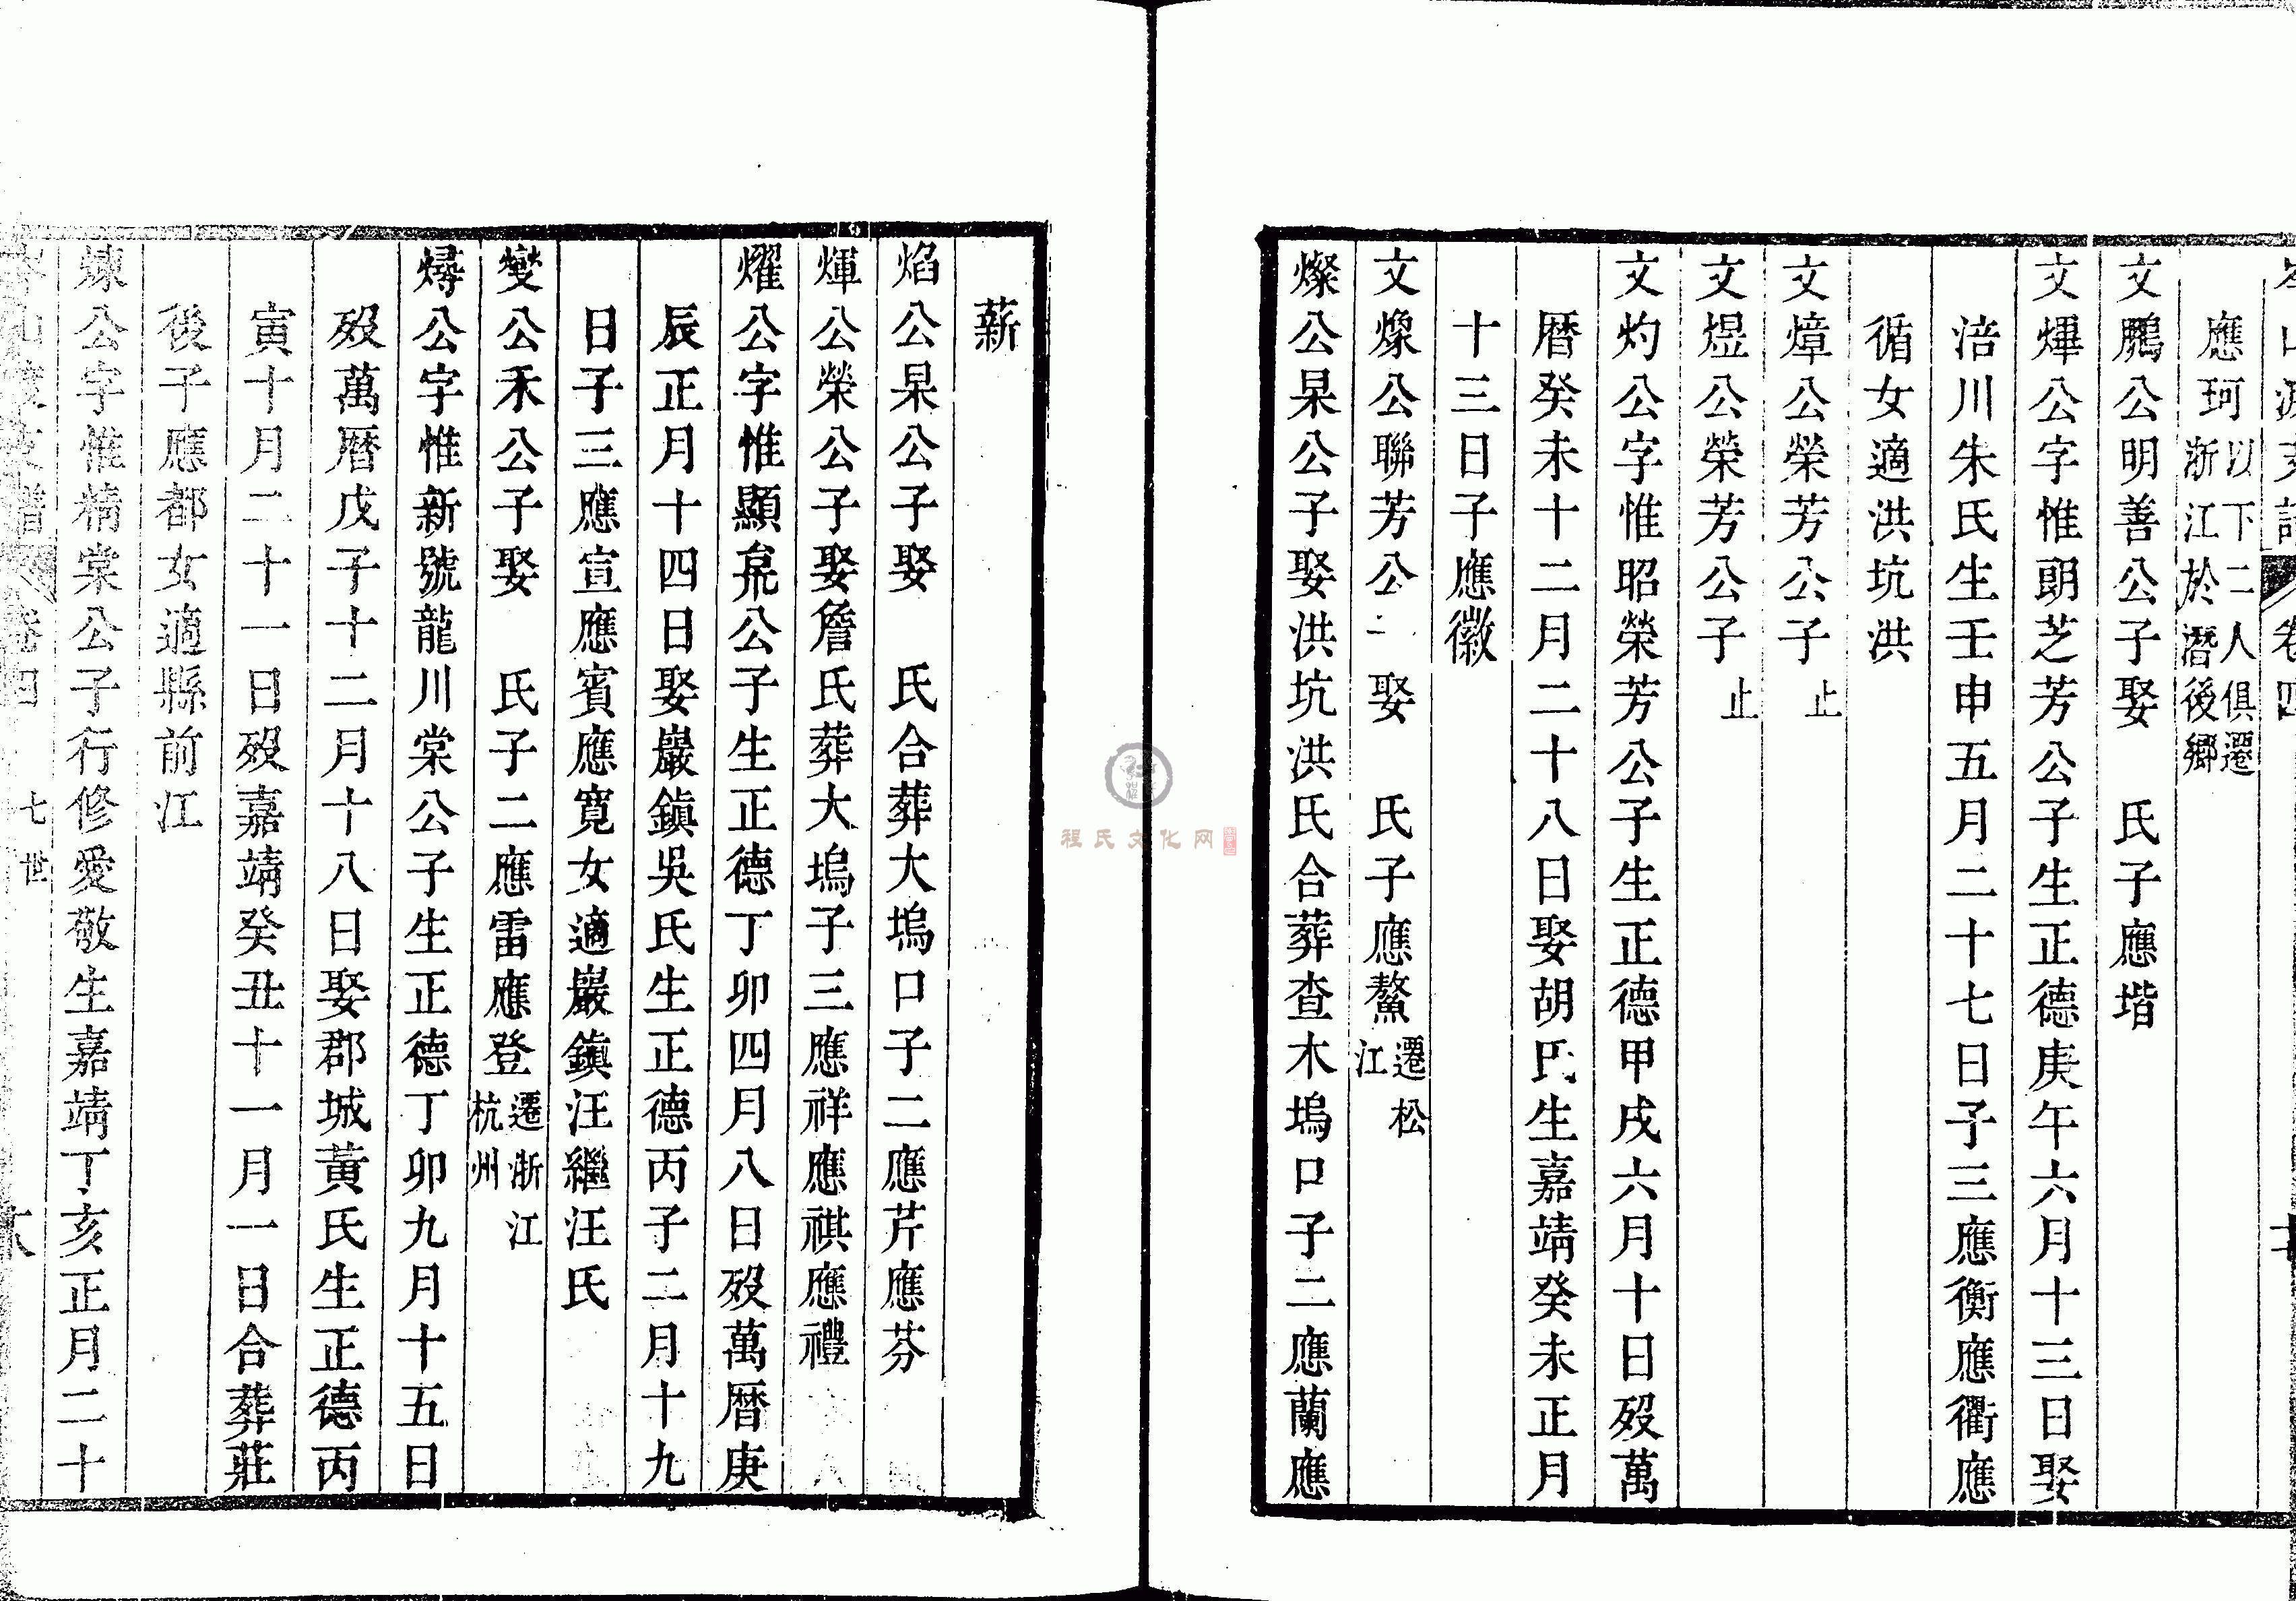 應珂以下二人俱遷浙江於潛後鄉
文鵬公明善公子娶　氏子應堦
文燁公字惟朗芝芳公子生正德庚午六月十三日娶
涪川朱氏生壬申五月二十七日子三應衡應衢應
循女適洪坑洪
文燑公榮芳公子止
文煜公榮芳公子止
文灼公字惟昭榮芳公子生正德甲戌六月十日歿萬
曆癸未十二月二十八日娶胡氏生嘉靖癸未正月
十三日子應徽
文燦公聯芳公　娶　氏子應鰲遷松江
燦公杲公子娶洪坑洪氏合葬查木塢口子二應蘭應
薪
焰公杲公子娶　氏合葬大塢口子二應芹應芬
煇公榮公子娶詹氏葬大塢子三應祥應祺應禮
燿公字惟顯公子生正德丁卯四月八日歿萬曆庚
辰正月十四日娶巖鎮吳氏生正德丙子二月十九
日子三應宣應賓應寬女適巖鎮汪繼汪氏
燮公禾公子娶　氏子二應雷應登遷浙江杭州
燖公字惟新號龍川棠公子生正德丁卯九月十五日
歿萬曆戊子十二月十八日娶郡城黃氏生正德丙
寅十月二十一日歿嘉靖癸丑十一月一日合葬莊
後子應都女適縣前江
煉公字惟精棠公子行修愛敬生嘉靖丁亥正月二十
卷四　七世
程氏文化网